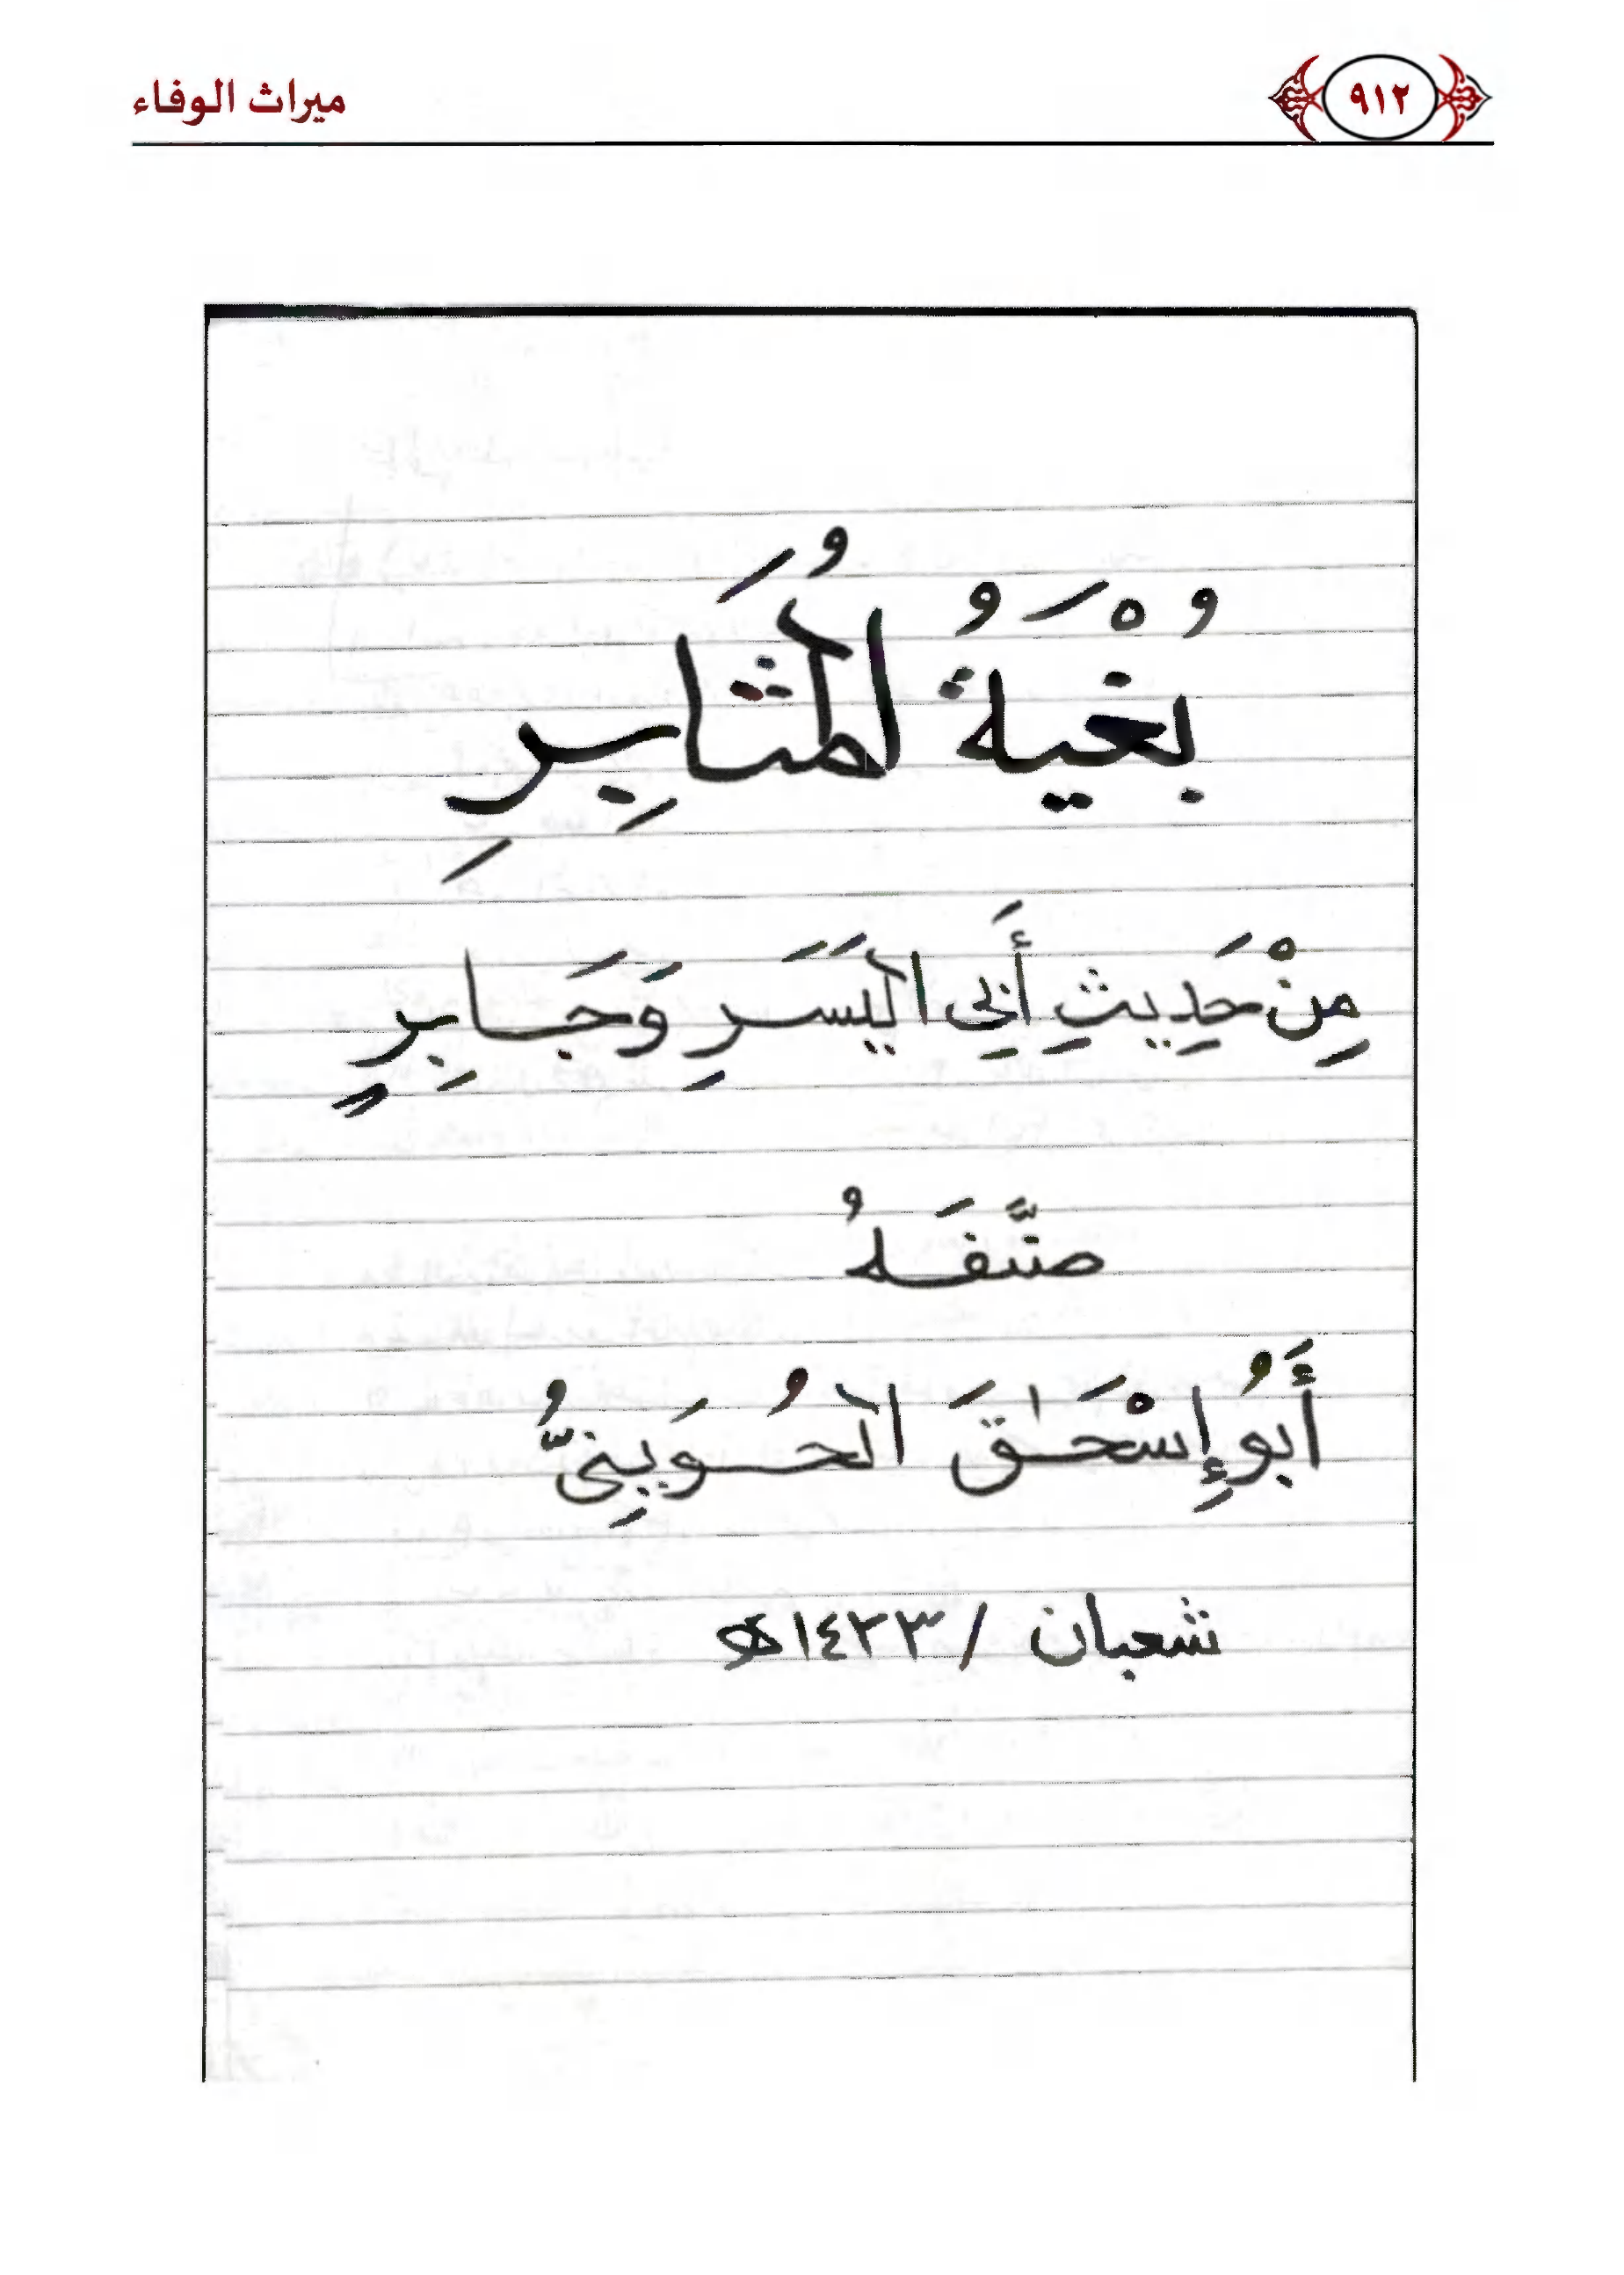 ميراث الوفاء
٩١٢
بُغْيَةُ المُثَابِرِ
مِنْ حَدِيثِ أَبِي اليَسَرِ وَجَابِرٍ
صنَّفَهُ
أَبُو إِسْحَاقَ الحُوَيْنِيُّ
شعبان / ١٤٣٣هـ